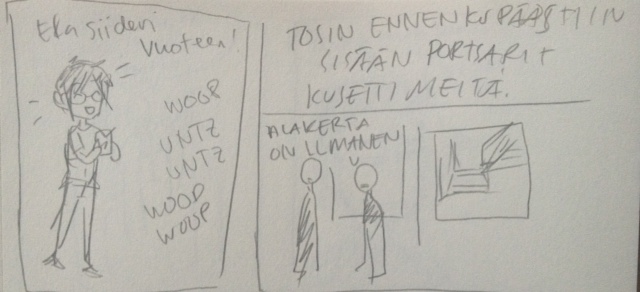 Eka siideri
vuoteen!
WOOP
UNTZ
UNTZ
WOOP
WOOP
TOSIN ENNENKU PÄÄSTIIN
SISÄÄN PORTSARIT
KUSETTI MEITÄ.
ALAKERTA
ON ILMANEN